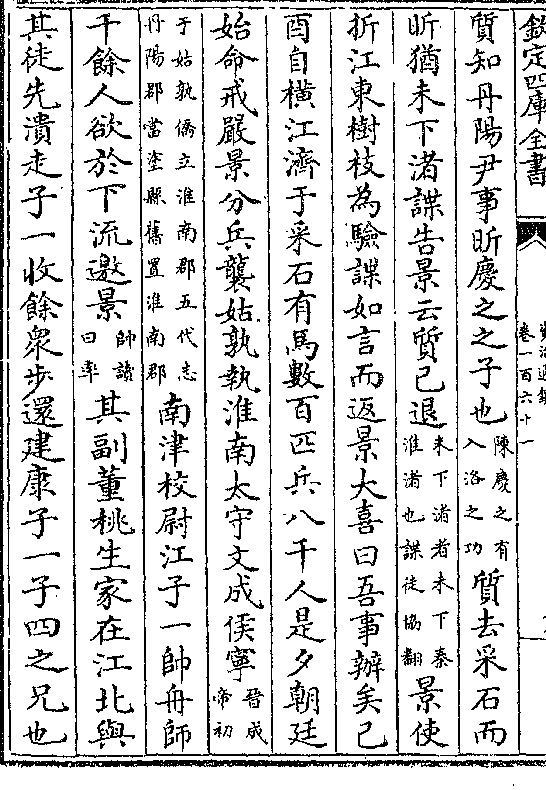 欽定四庫全書
卷一百六十一
質知丹陽尹事昕慶之之子也陳慶之有入洛之功質去采石而
昕猶未下渚諜告景云質已退未下渚者未下秦淮渚也諜徒協翻景使
折江東樹枝為驗諜如言而返景大喜曰吾事辦矣己
酉自橫江濟于采石有馬數百匹兵八千人是夕朝廷
始命戒嚴景分兵襲姑孰執淮南太守文成侯寧晉成帝初
于姑孰僑立淮南郡五代志丹陽郡當塗縣舊置淮南郡南津校尉江子一帥舟師
千餘人欲於下流邀景帥讀曰率其副董桃生家在江北與
其徒先潰走子一收餘衆步還建康子一子四之兄也